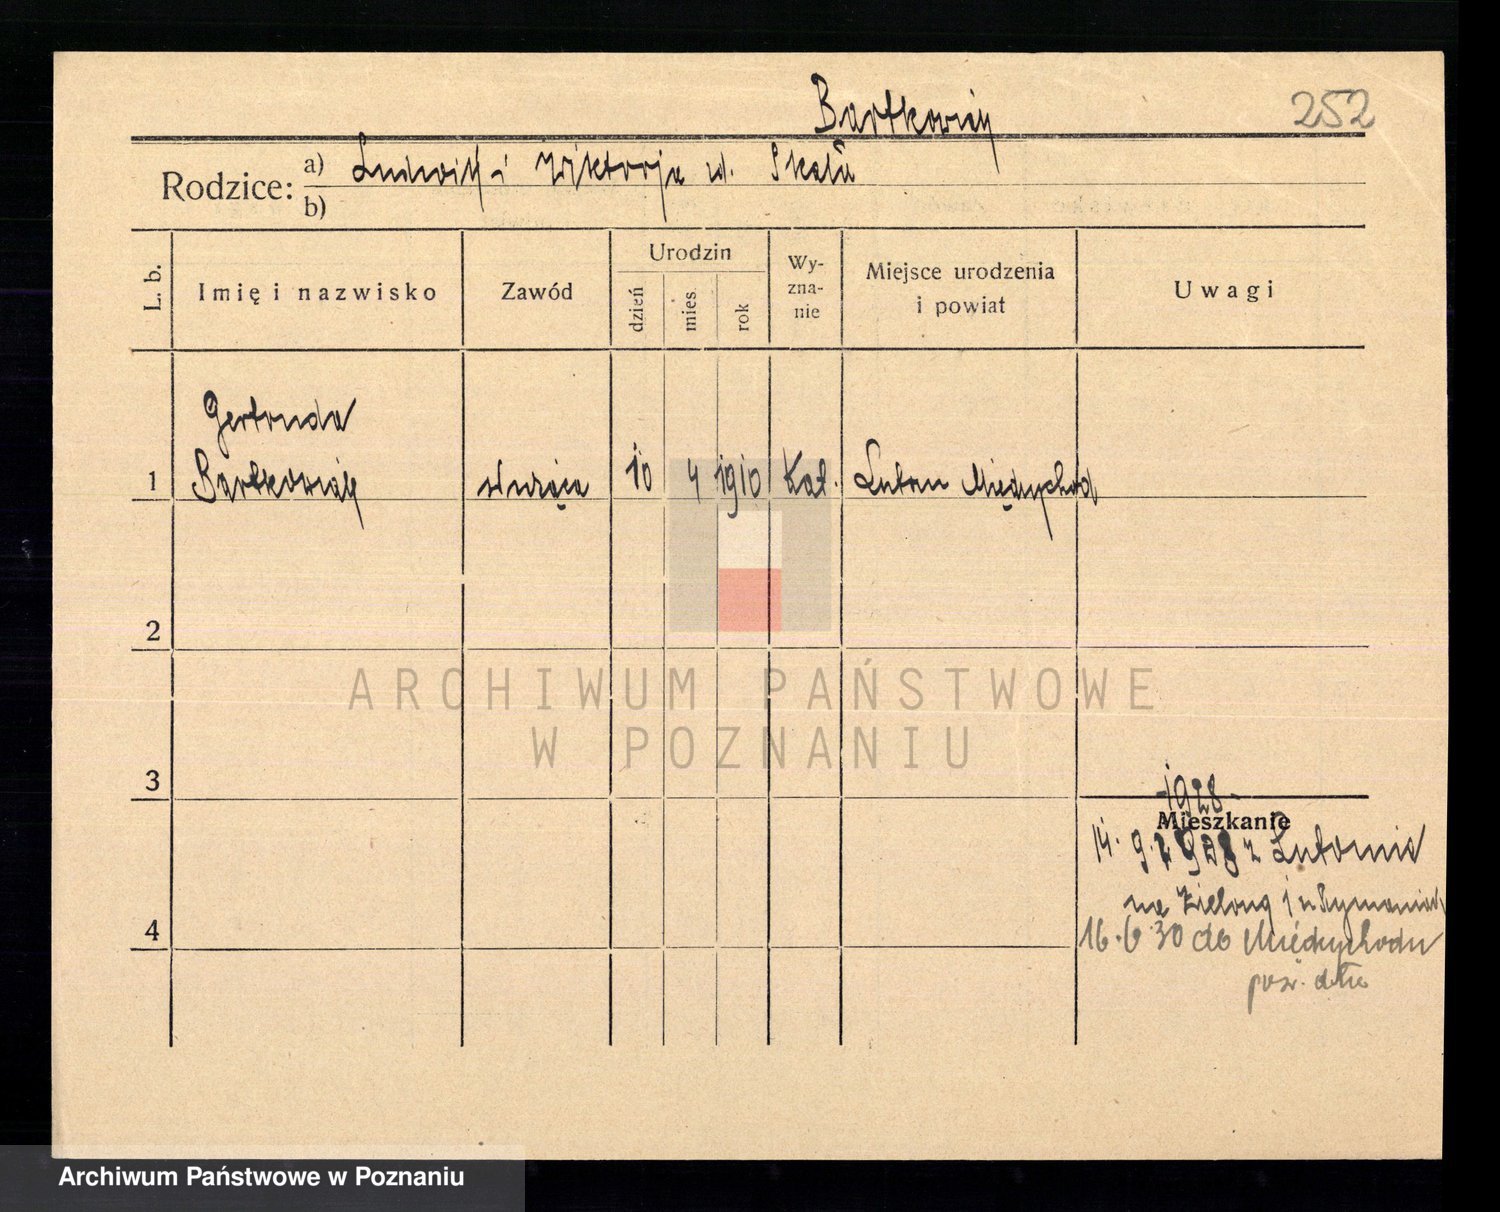 Bartkowiak
252
Rodzice: a) Ludwik i Wiktorja ur.
b)
L. b. Imię i nazwisko Zawód Urodzin dzień mies rok Wy-zna-nie Miejsce urodzenia i powiat Uwagi
Gertruda
1 Bartkowiak służąca 10 4 1910 Kat. Lutom Międzychód
2
ARCHIWUM PAŃSTWOWE
W POZNANIU
3
-1928-
Mieszkanie
14. 9. 1928 z Lutomia
na Zieloną 1
4
16.6.30 do Międzychodu
Archiwum Państwowe w Poznaniu